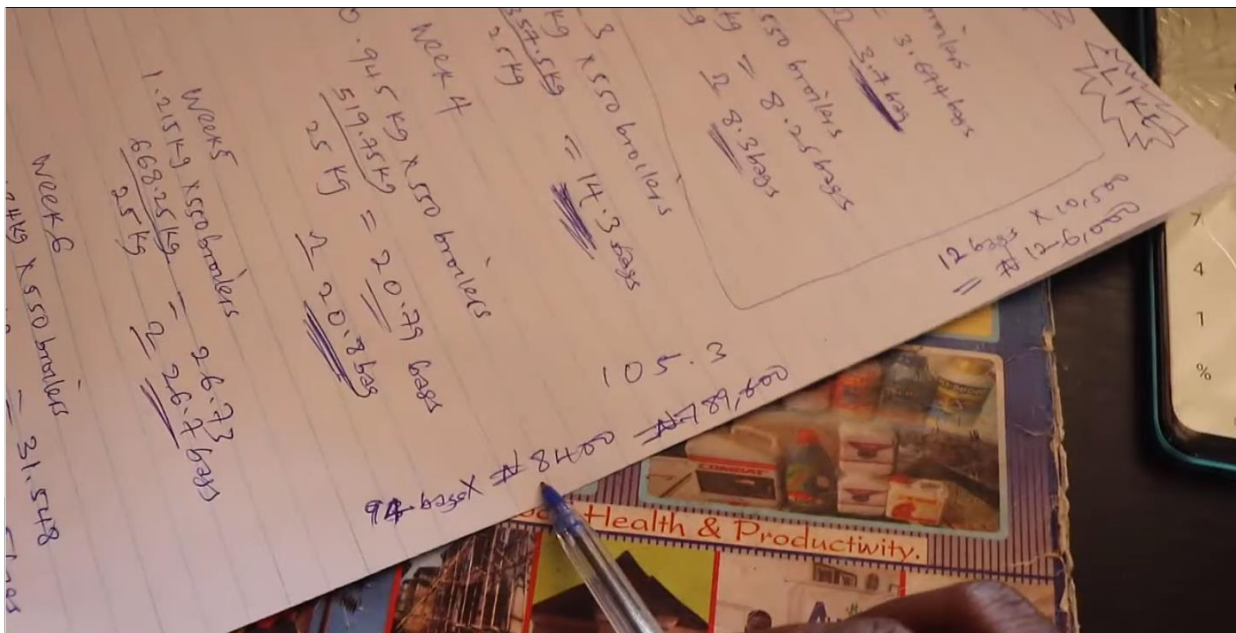 LIKE
broilers
= 3.694 bags
Ω 3.7 bag
550 broilers
= 8.25 bags
Ω 8.3 bags
3
kg x 550 broilers
357.5kg
25kg
= 14.3 bags
Week 4
0.945 kg x 550 broilers
519.75kg
25 kg
= 20.79 bags
Ω 20.8 bag
Week 5
1.215kg x 550 broilers
668.25kg
25kg
= 26.73
Ω 26.7 bags
Week 6
34kg x 550 broilers
= 31.548
12 bags x 10,500
= ₦ 126,000
105.3
94 bags x ₦ 8400 ₦789,600
COMBAT
Health & Productivity.
4
1
%